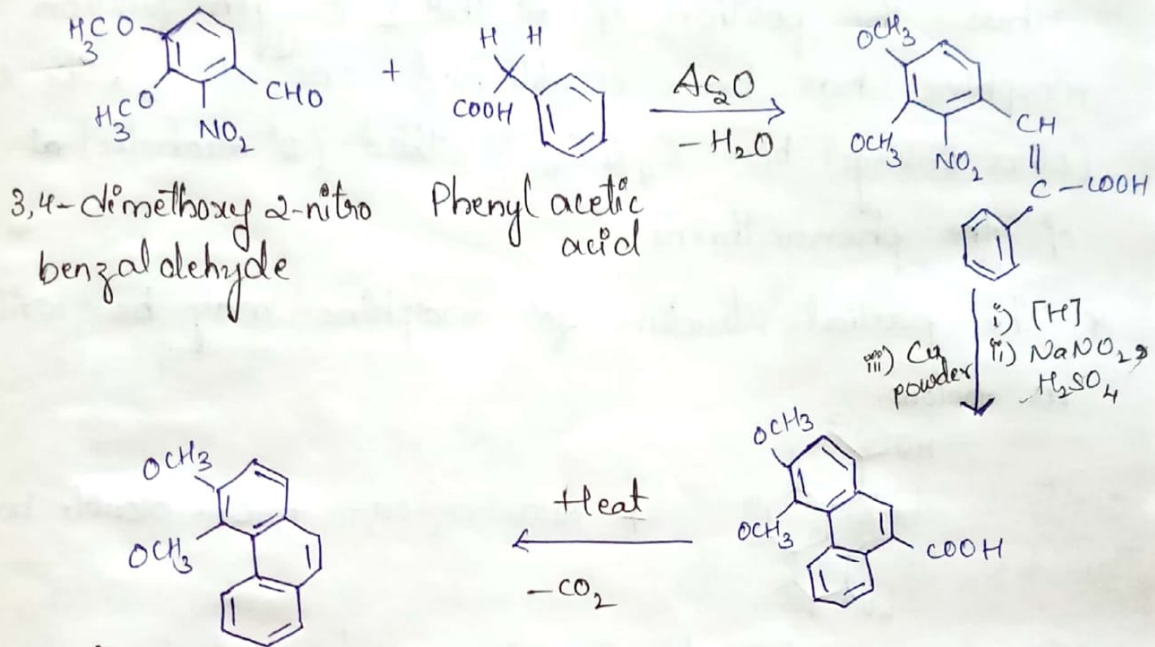 H3CO
H3CO
NO2
CHO
+
H H
COOH
Ac2O
-H2O
OCH3
OCH3
NO2
CH
||
C-COOH
3,4-dimethoxy 2-nitro
benzaldehyde
Phenyl acetic
acid
i) [H]
ii) NaNO2,
H2SO4
iii) Cu
powder
OCH3
OCH3
COOH
Heat
-CO2
OCH3
OCH3